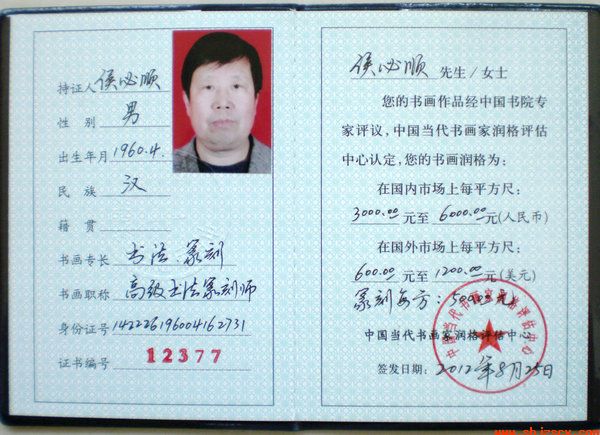 持证人 侯必顺
性 别 男
出生年月 1960.4.
民 族 汉
籍 贯
书画专长 书法.篆刻
书画职称 高级书法篆刻师
身份证号 142226196004162731
证书编号 12377
侯必顺 先生/女士
您的书画作品经中国书院专
家评议,中国当代书画家润格评估
中心认定,您的书画润格为:
在国内市场上每平方尺:
3000.00元至 6000.00元(人民币)
在国外市场上每平方尺:
600.00 元至 1200.00 (美元)
篆刻每方:500.00元
中国当代书画家润格评估中心
签发日期: 2012年8月25日
中国当代书画家润格评估中心